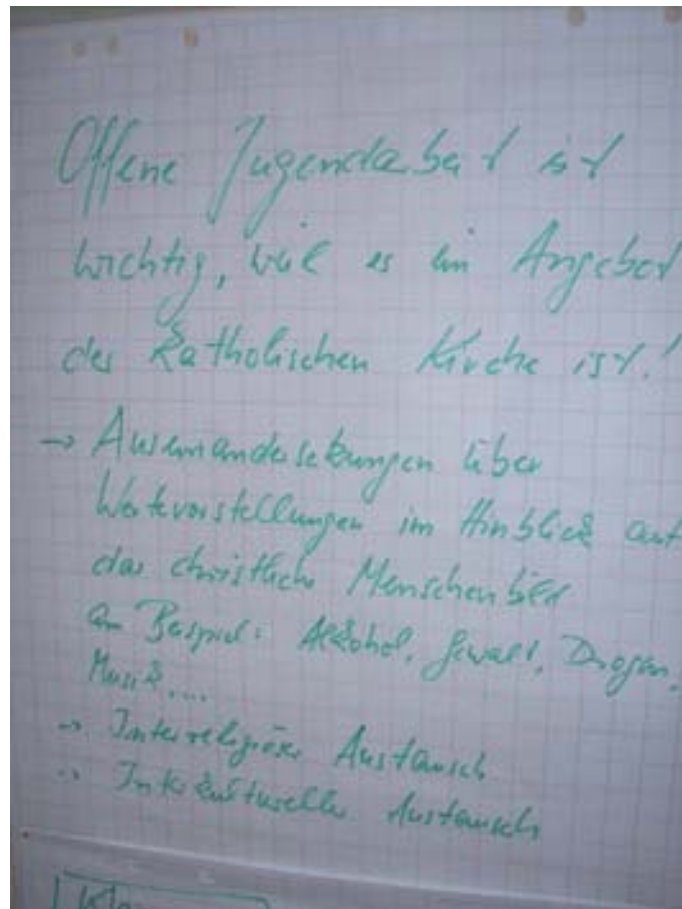 Offene Jugendarbeit ist
wichtig, weil es ein Angebot
der Katholischen Kirche ist!
→ Auseinandersetzungen über
Wertevorstellungen im Hinblick auf
das christliche Menschenbild
am Beispiel: Alkohol, Gewalt, Drogen,
Musik....
→ Interreligiöser Austausch
→ Interkultureller Austausch